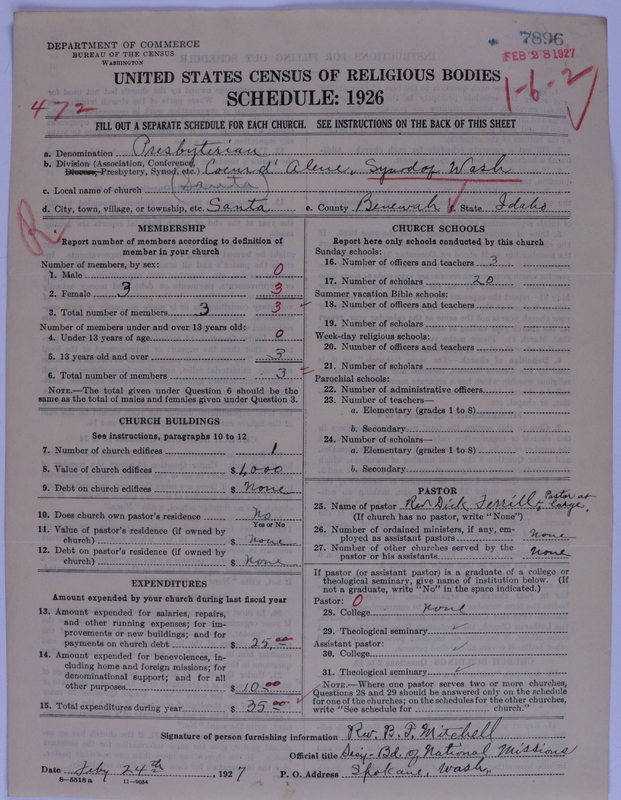 DEPARTMENT OF COMMERCE
BUREAU OF THE CENSUS
WASHINGTON
7896
FEB 28 1927
UNITED STATES CENSUS OF RELIGIOUS BODIES
SCHEDULE: 1926
1-6-2
472
FILL OUT A SEPARATE SCHEDULE FOR EACH CHURCH. SEE INSTRUCTIONS ON THE BACK OF THIS SHEET
a. Denomination Presbyterian
b. Division (Association, Conference, Diocese, Presbytery, Synod, etc.) Coeur d' Alene, Synod of Wash
c. Local name of church (Santa)
d. City, town, village, or township, etc. Santa e. County Benewah f. State Idaho
R
MEMBERSHIP
Report number of members according to definition of
member in your church
Number of members, by sex:
1. Male 0
2. Female 3 3
3. Total number of members 3 3
Number of members under and over 13 years old:
4. Under 13 years of age 0
5. 13 years old and over 3
6. Total number of members 3
NOTE.—The total given under Question 6 should be
same as the total of males and females given under Question 3.
CHURCH BUILDINGS
See instructions, paragraphs 10 to 12
7. Number of church edifices 1
8. Value of church edifices $ 1,000
9. Debt on church edifices $ None
10. Does church own pastor's residence No
Yes or No
11. Value of pastor's residence (if owned by
church) $ None
12. Debt on pastor's residence (if owned by
church) $ None
EXPENDITURES
Amount expended by your church during last fiscal year
13. Amount expended for salaries, repairs,
and other running expenses; for im-
provements or new buildings; and for
payments on church debt $ 25.00
14. Amount expended for benevolences, in-
cluding home and foreign missions; for
denominational support; and for all
other purposes $ 10.00
15. Total expenditures during year $ 35.00
CHURCH SCHOOLS
Report here only schools conducted by this church
Sunday schools:
16. Number of officers and teachers 3
17. Number of scholars 20
Summer vacation Bible schools:
18. Number of officers and teachers
19. Number of scholars
Week-day religious schools:
20. Number of officers and teachers
21. Number of scholars
Parochial schools:
22. Number of administrative officers
23. Number of teachers—
a. Elementary (grades 1 to 8)
b. Secondary
24. Number of scholars—
a. Elementary (grades 1 to 8)
b. Secondary
PASTOR
25. Name of pastor Rev. Dick Ferrell, Pastor at large.
(If church has no pastor, write "None")
26. Number of ordained ministers, if any, em-
ployed as assistant pastors none
27. Number of other churches served by the
pastor or his assistants none
If pastor (or assistant pastor) is a graduate of a college or
theological seminary, give name of institution below. (If
not a graduate, write "No" in the space indicated.)
Pastor: 0
28. College none
29. Theological seminary
Assistant pastor:
30. College
31. Theological seminary
NOTE.—Where one pastor serves two or more churches,
Questions 28 and 29 should be answered only on the schedule
for one of the churches; on the schedules for the other churches,
write "See schedule for church."
Signature of person furnishing information Rev. B. F. Mitchell
Official title Secy- Bd. of National Missions
Date Feby 24th, 1927 P. O. Address Spokane, Wash.
8—5518 a 11—9054